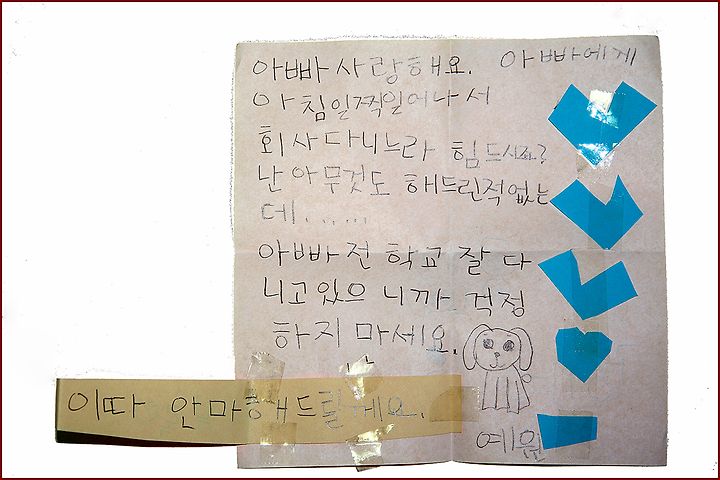 아빠사랑해요. 아빠에게
아침일찍일어나서
회사다니느라 힘드시죠?
난아무것도 해드린적없는
데......
아빠전 학교 잘 다
니고있으니까 걱정
하지 마세요.
이따 안마해드릴께요.
예원